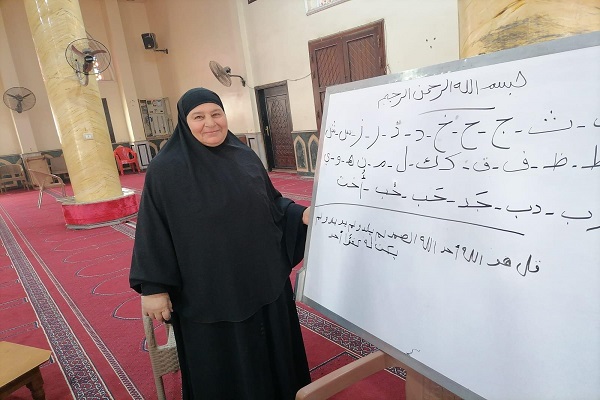 بسم الله الرحمن الرحيم
ث - ج - ح - خ - د - ذ - ر - ز - س - ش
ط - ف - ق - ك ك - ل - م - ن - ه - و - ى
رب - دب - جَد - حَب - حُب - أُخت
قل هو الله أحد الله الصمد لم يلد و لم يولد و لم
يكن له كفؤا أحد